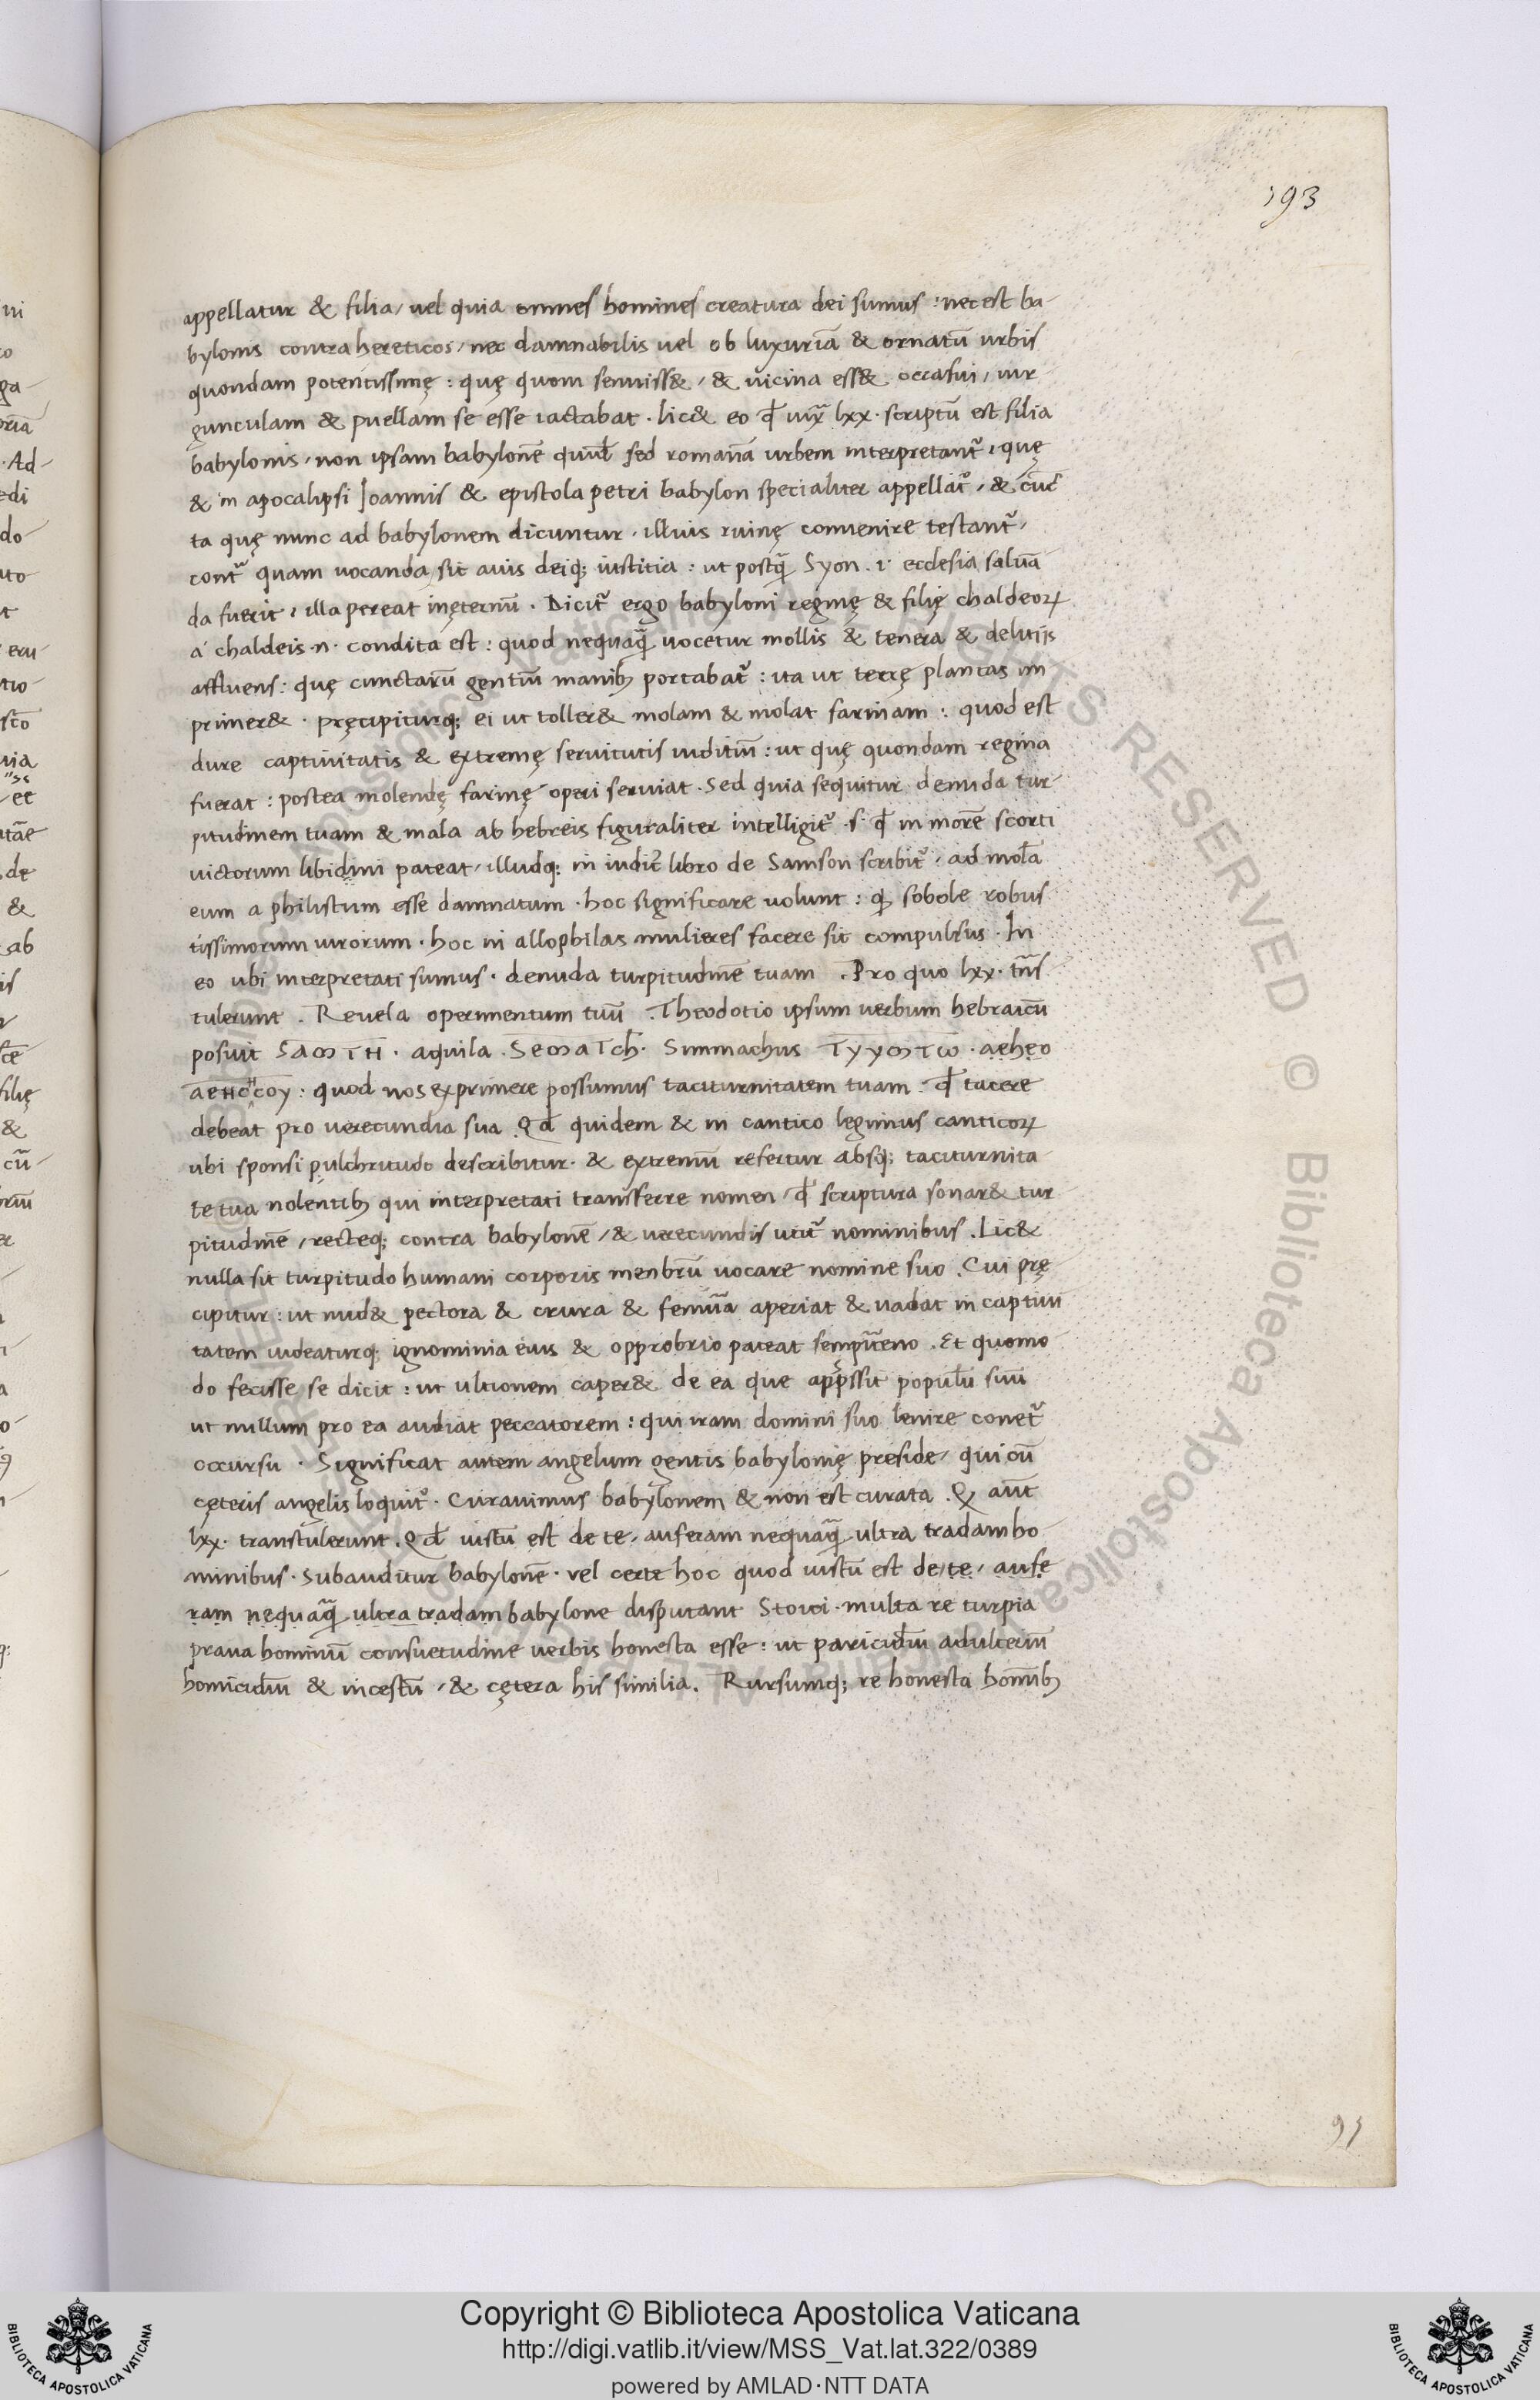 193
appellatur & filia, uel quia omnes homines creatura dei sumus : nec est ba-
bylonis contra hereticos, nec damnabilis uel ob luxuriā & ornatū urbis
quondam potentissimę : quę quom senuiss&, & uicina ess& occasui, uir
gunculam & puellam se esse iactabat . lic& eo qđ iuxͣ lxx . scriptū est filia
babylonis, non ipsam babylonē sed romanā urbem interpretant᷑, quę
& in apocalipsi Joannis & epistola petri babylon specialiter appellat᷑, & cūc
ta quę nunc ad babylonem dicuntur, illius ruinę conuenire testant᷑,
contͣ quam uocanda sit auis deiq; iustitia : ut postq̄ Syon .i. ecclesia saluā
da fuerit, illa pereat inęternū . Dicit᷑ ergo babyloni reginę & filię chaldeoꝝ
á chaldeis .n. condita est : quod nequaq̄ uocetur mollis & tenera & delitijs
affluens : quę cunctarū gentiū manibꝫ portabat᷑ : ita ut terrę plantas im
primer& . pręcipiturq; ei ut toller& molam & molat farinam : quod est
dure captiuitatis & extremę seruitutis inditiū : ut quę quondam regina
fuerat : postea molendę farinę operi seruiat . Sed quia sequitur denuda tur-
pitudinem tuam & mala ab hebreis figuraliter intelligit᷑ .s. qđ in morē scorti
uictorum libidini pateat, illudq; in iudic̄ libro de Samson scribit᷑, ad molā
eum a philistum esse damnatum . hoc significare uolunt : ꝙ sobole robus
tissimorum uirorum . hoc in allophilas mulieres facere sit compulsus . In
eo ubi interpretati sumus . denuda turpitudinē tuam . Pro quo lxx . tn̄s
tulerunt . Reuela operimentum tuū . Theodotio ipsum uerbum hebraicū
posuit . aquila . Simmachus
quod nos exprimere possumus taciturnitatem tuam . qđ tacere
debeat pro uerecundia sua . Qđ quidem & in cantico legimus canticoꝝ
ubi sponsi pulchritudo describitur . & extremū refertur absq; taciturnita
te tua nolentibꝫ qui interpretati transferre nomen, qđ scriptura sonar& tur
pitudinē, recteq; contra babylonē, & uerecundis utit᷑ nominibus . Lic&
nulla sit turpitudo humani corporis menbrū uocare nomine suo . Cui prę
cipitur : ut nud& pectora & crura & femīa aperiat & uadat in captiui
tatem uideaturq; ignominia eius & opprobrio pateat sempit̄no . Et quomo
do fecisse se dicit : ut ultionem caper& de ea que populū suū
ut nullum pro ea audiat peccatorem : qui iram domini suo lenire conet᷑
occursu . Significat autem angelum gentis babylonię preside, qui cū
cęteris angelis loquit᷑ . Curauimus babylonem & non est curata . Q aūt
lxx . transtulerunt . Qđ iustū est de te, auferam nequaq̄ ultra tradam ho-
minibus . Subauditur babylonē . vel certe hoc quod iustū est de te, aufe
ram nequaq̄ ultra tradam babylone disputant Stoici . multa re turpia
praua hominū consuetudine uerbis honesta esse : ut paricidiū adulteriū
homicidiū & incestū, & cętera his similia . Rursumq; re honesta hominibꝫ
Copyright © Biblioteca Apostolica Vaticana
http://digi.vatlib.it/view/MSS_Vat.lat.322/0389
powered by AMLAD·NTT DATA